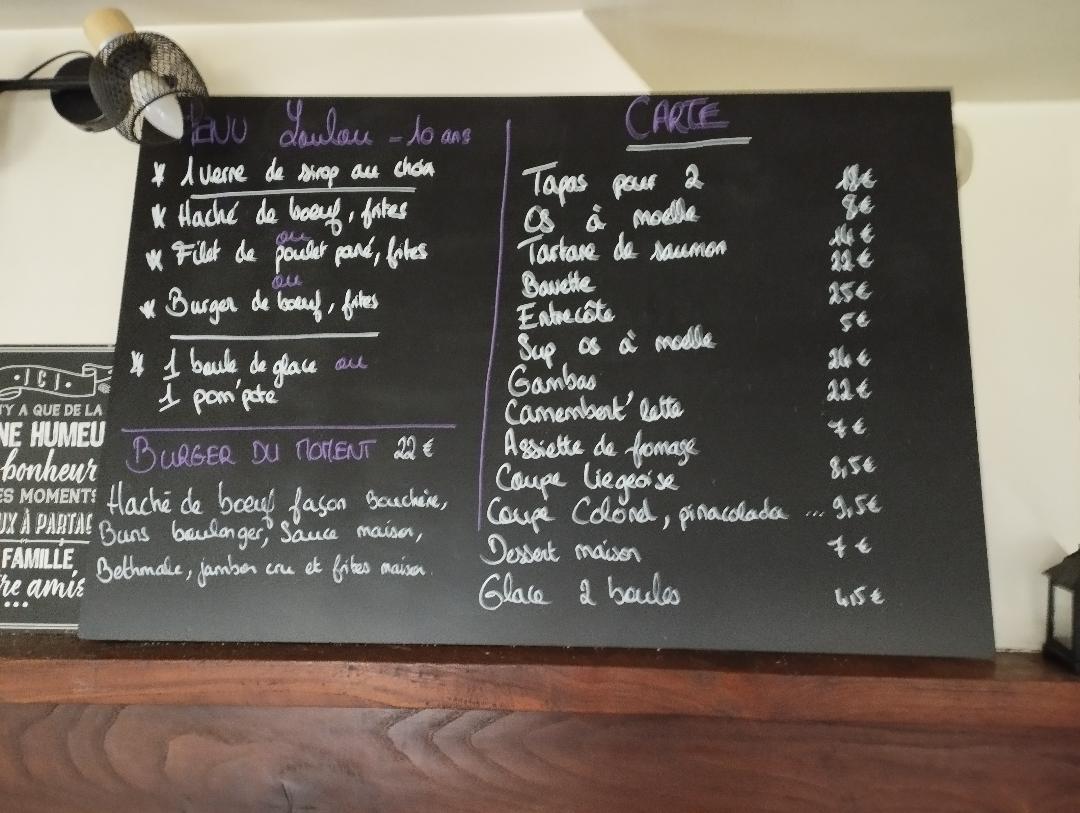 MENU Loulou - 10 ans
* 1 verre de sirop au choix
* Haché de boeuf, frites
ou
* Filet de poulet pané, frites
ou
* Burger de boeuf, frites
* 1 boule de glace ou
1 pom'pote
BURGER DU MOMENT 22 €
Haché de boeuf façon Bouchère,
Buns boulanger, Sauce maison,
Bethmale, jambon cru et frites maison.
CARTE
Tapas pour 2
Os à moelle 8€
Tartare de saumon
Bavette 22€
Entrecôte 25€
Sup os à moelle 5€
Gambas
Camembert' lette 22€
Assiette de fromage 7€
Coupe liegeoise 8,5€
Coupe Colonel, pinacolada ... 9,5€
Dessert maison 7€
Glace 2 boules 4,5€
• ICI •
TY A QUE DE LA
NE HUMEU
bonheur
ES MOMENTS
UX À PARTAG
FAMILLE
re amis
...